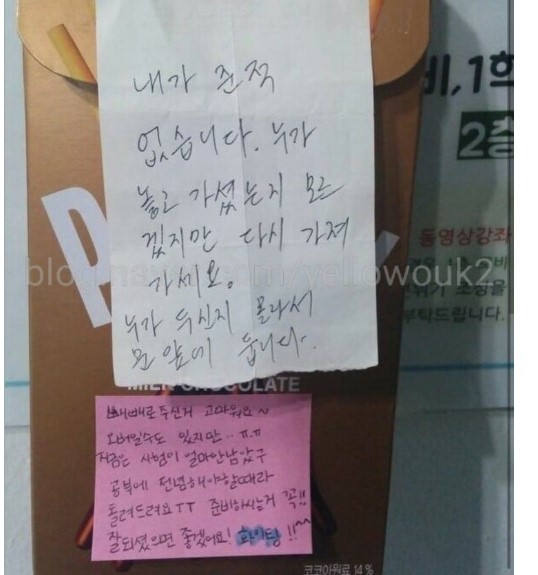 내가 준적
없습니다. 누가
놓고 가셨는지 모르
겠지만 다시 가져
가세요.
누가 두신지 몰라서
문 앞에 둡니다.
MILK CHOCOLATE
빼빼로주신거 고마워요~
오버일수도 있지만.. ㅠ.ㅠ
저는 시험이 얼마안남았구
공부에 전념해야할때라
돌려드려요 ㅜㅜ 준비하시는거 꼭!!
잘되셨으면 좋겠어요! 화이팅!!^^
코코아원료 14%
비, 1회
2층
동영상강좌
부탁드립니다.